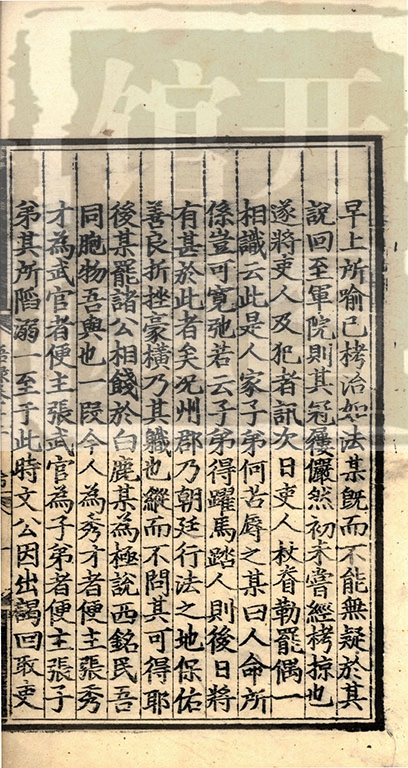 早上所喻已栲治如法某旣而不能無疑於其
說回至軍院則其冠屨儼然初未嘗經栲掠也
遂將吏人及犯者訊次日吏人杖脊勒罷偶一
相識云此是人家子弟何苦辱之某曰人命所
係豈可寬弛若云子弟得躍馬踏人則後日將
有甚於此者矣况州郡乃朝廷行法之地保佑
善良折挫豪橫乃其軄也縱而不問其可得耶
後某罷諸公相餞於白鹿某為極說西銘民吾
同胞物吾與也一段今人為秀才者便主張秀
才為武官者便主張武官為子弟者便主張子
弟其所䧟溺一至于此時文公因出謁回取吏